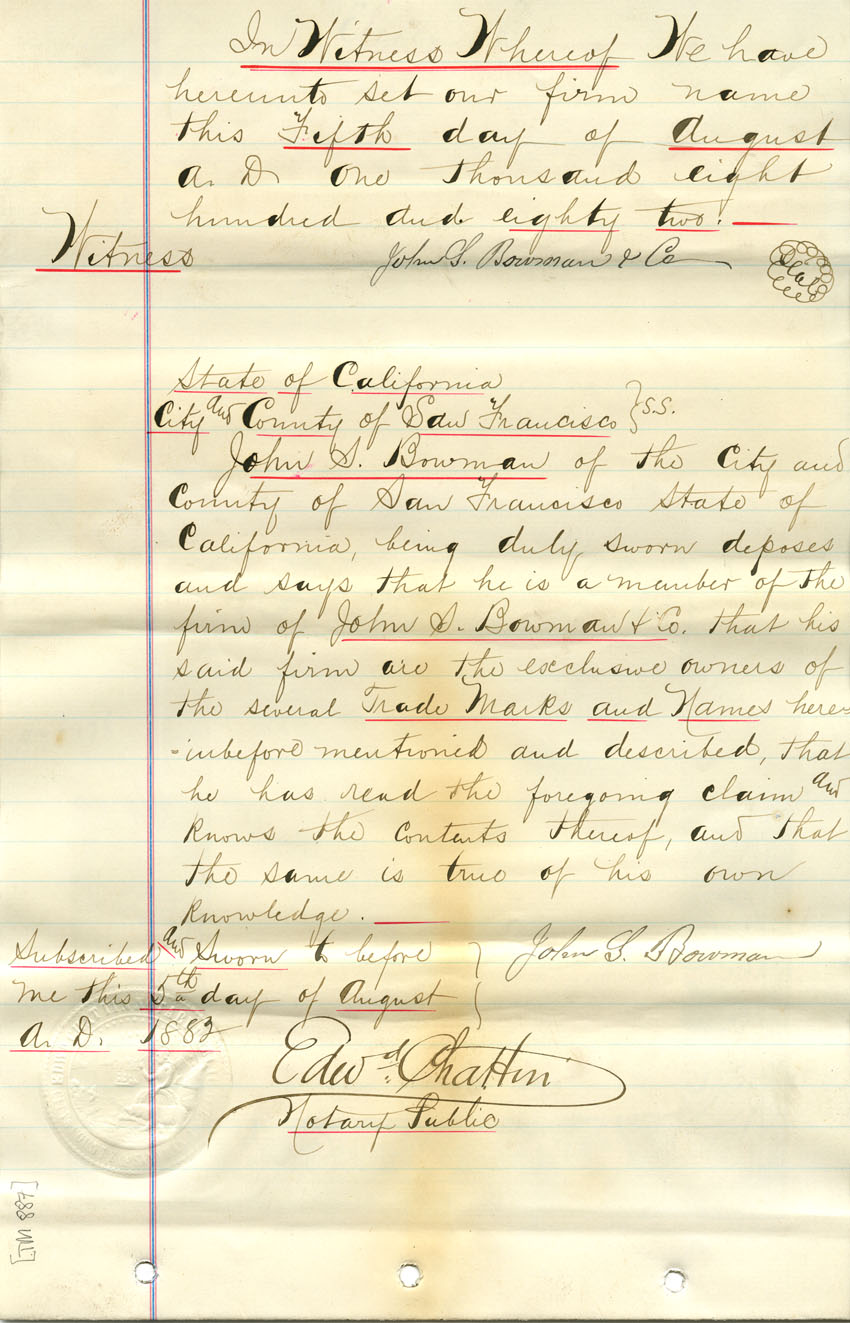 In Witness Whereof We have
hereunto set our firm name
this Fifth day of August
A. D. One thousand eight
hundred and eighty two.
Witness John S. Bowman & Co Seal
State of California
City and County of San Francisco } S.S.
John S. Bowman of the City and
County of San Francisco State of
California, being duly sworn deposes
and says that he is a member of the
firm of John S. Bowman & Co. that his
said firm are the exclusive owners of
the several Trade Marks and Names here=
=inbefore mentioned and described, that
he has read the foregoing claim and
knows the contents thereof, and that
the same is true of his own
knowledge.
Subscribed and Sworn to before } John S. Bowman
me this 5th day of August
A. D. 1882
Edwd. Chattin
Notary Public